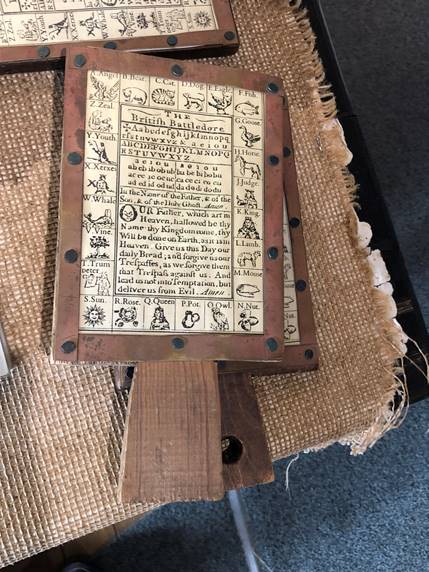 A.Angel B.Bear. C.Cat. D.Dog E.Eagle F.Fish
G.Goose.
H.Horse.
I.Judge.
K.King.
L.Lamb.
M.Mouse
N.Nut.
O.Owl.
P.Pot.
Q.Queen
R.Rose.
S.Sun.
T.Trum
peter
Vine.
W.Whale
X.Xerxes
Y.Youth
Z.Zeal.
THE
British Battledore
Aabcdefghijklmnopq
rſstuvwxyz & aeiou
ABCDEFGHIJKLMNOPQ
RSTUVWXYZ
a e i o u
ab eb ib ob ub ba be bi bo bu
ac ec ic oc uc ca ce ci co cu
ad ed id od ud da de di do du
In the Name of the Father, & of the
Son, & of the Holy Ghost. Amen
OUR Father, which art in
Heaven, hallowed be thy
Name: thy Kingdom come, thy
Will be done on Earth, as it is in
Heaven. Give us this Day our
daily Bread; and forgive us our
Treſpaſſes, as we forgive them
that Treſpaſs againſt us: And
lead us not into Temptation, but
deliver us from Evil. Amen